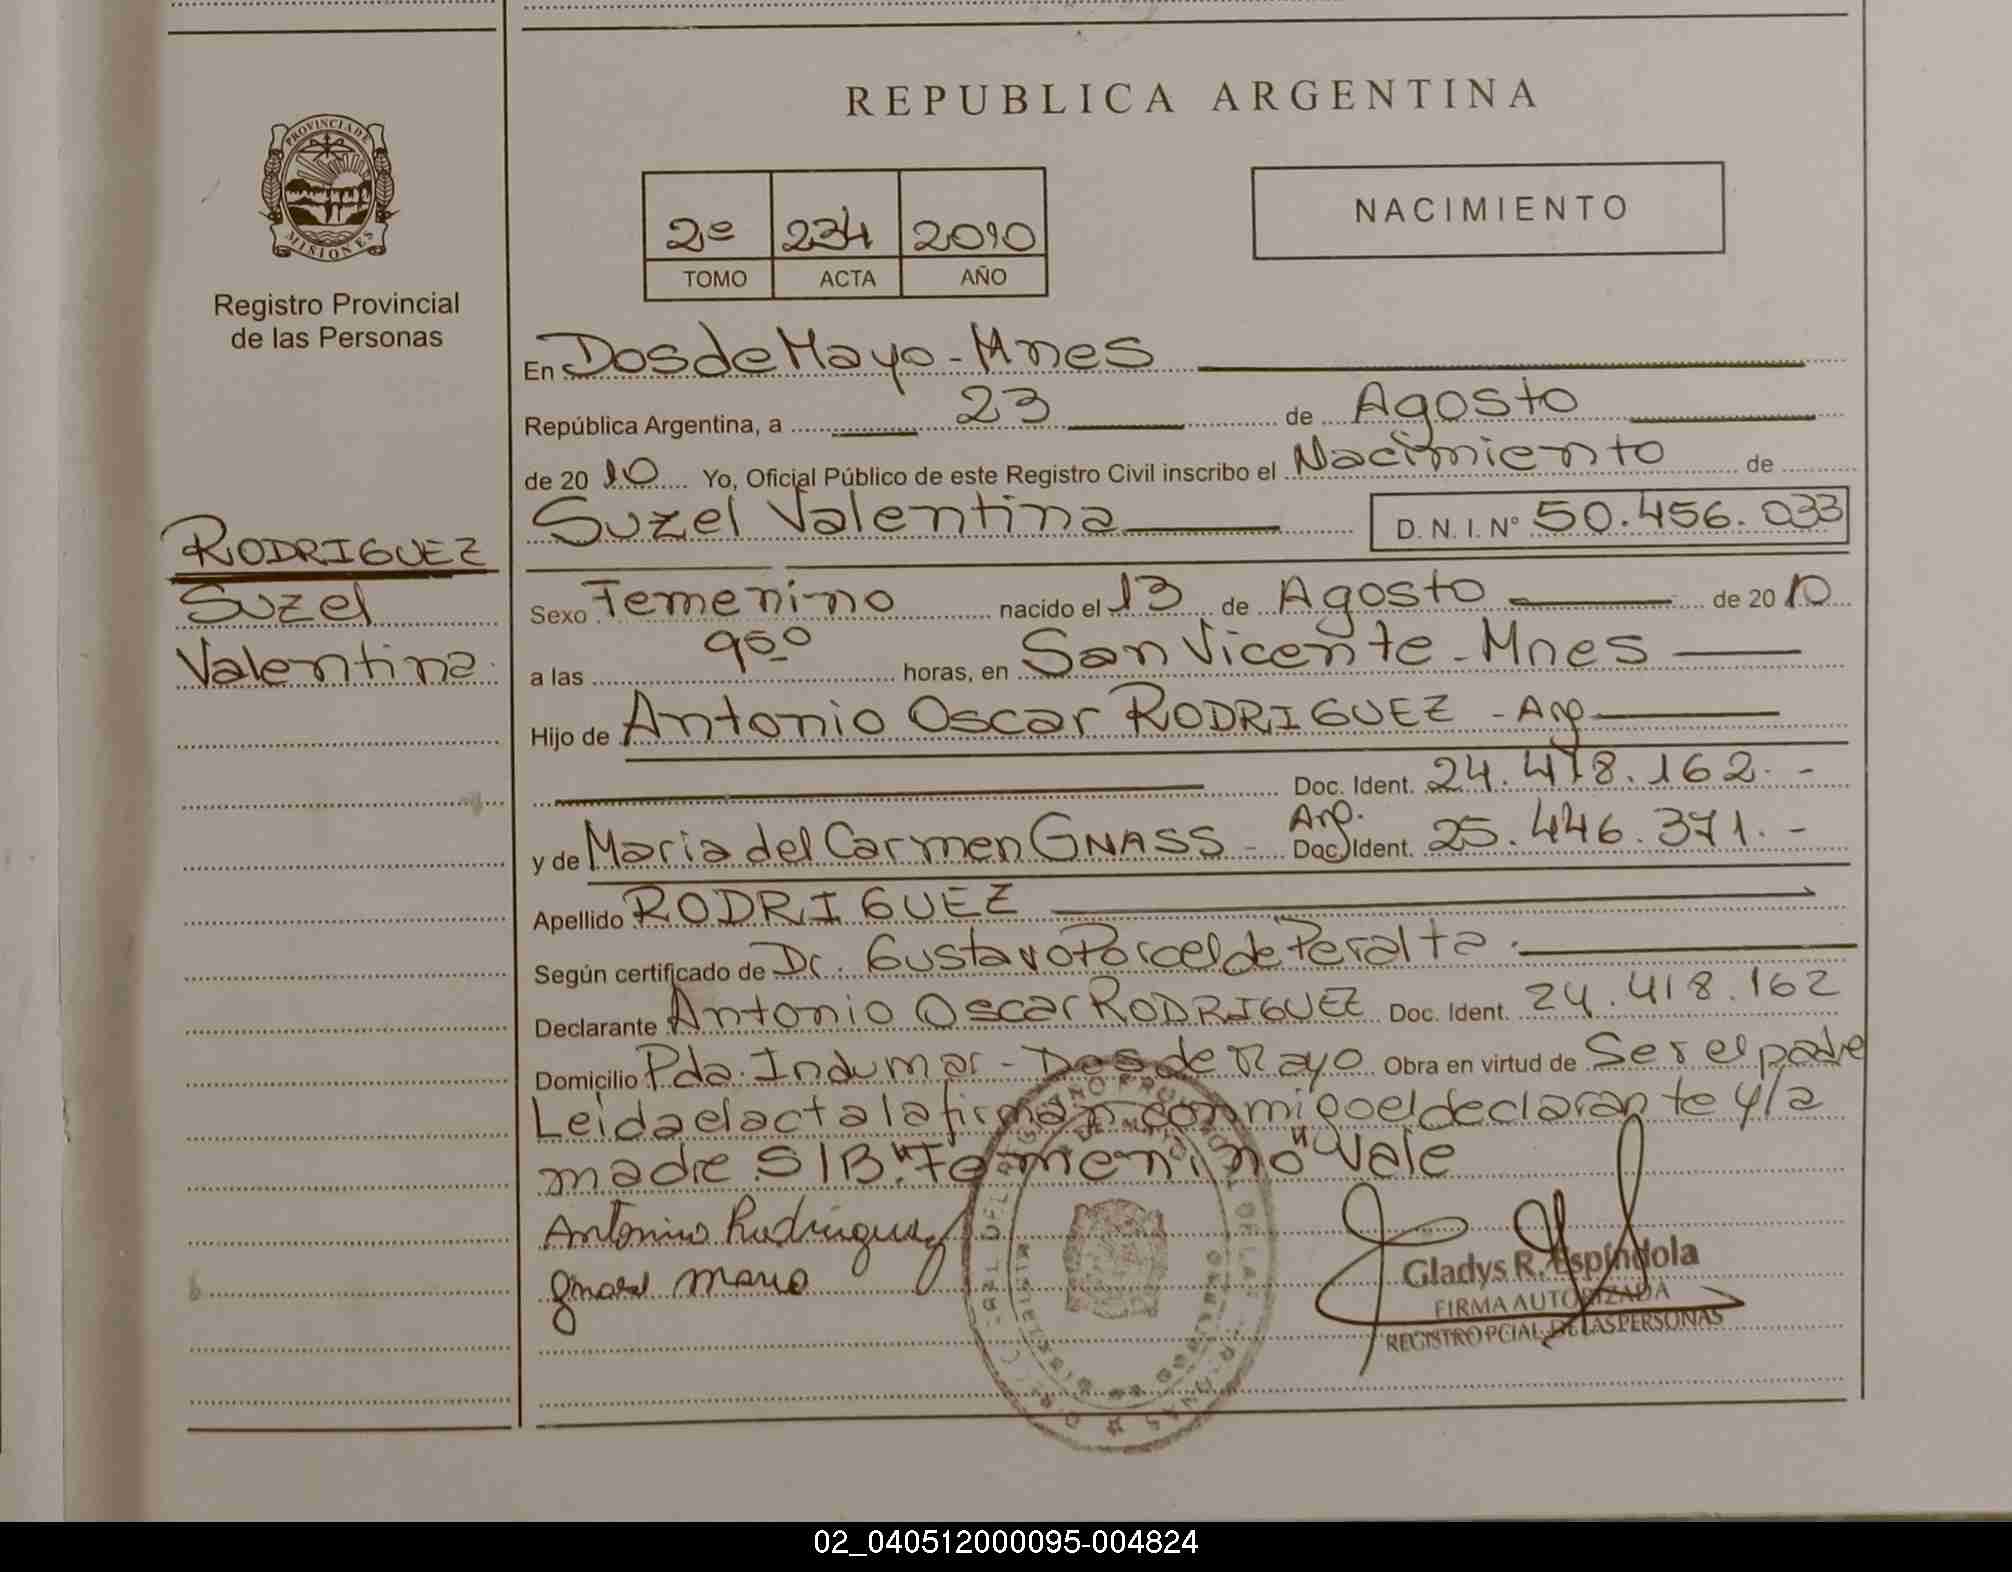 REPUBLICA ARGENTINA
PROVINCIA DE
MISIONES
Registro Provincial
de las Personas
2º 234 2010
TOMO ACTA AÑO
NACIMIENTO
RODRIGUEZ
Suzel
Valentina.
En Dos de Mayo - Mnes
República Argentina, a 23 de Agosto
de 2010 Yo, Oficial Público de este Registro Civil inscribo el Nacimiento de
Suzel Valentina D. N. I. Nº 50.456.033
Sexo Femenino nacido el 13 de Agosto de 2010
a las 950 horas, en San Vicente - Mnes
Hijo de Antonio Oscar RODRIGUEZ - Arg
Doc. Ident. 24.418.162.-
Arg.
y de Maria del Carmen GNASS - Doc. Ident. 25.446.371.-
Apellido RODRIGUEZ
Según certificado de Dr. Gustavo Porcel de Peralta.
Declarante Antonio Oscar RODRIGUEZ Doc. Ident. 24.418.162
Domicilio Pda. Indumar - Dos de Mayo Obra en virtud de Ser el padre
Leida el acta la firman conmigo el declarante y la
madre S/B. "Femenino" Vale
Antonio Rodriguez
Gnass Maria
Gladys R. Espíndola
FIRMA AUTORIZADA
REGISTRO PCIAL. DE LAS PERSONAS
02_040512000095-004824